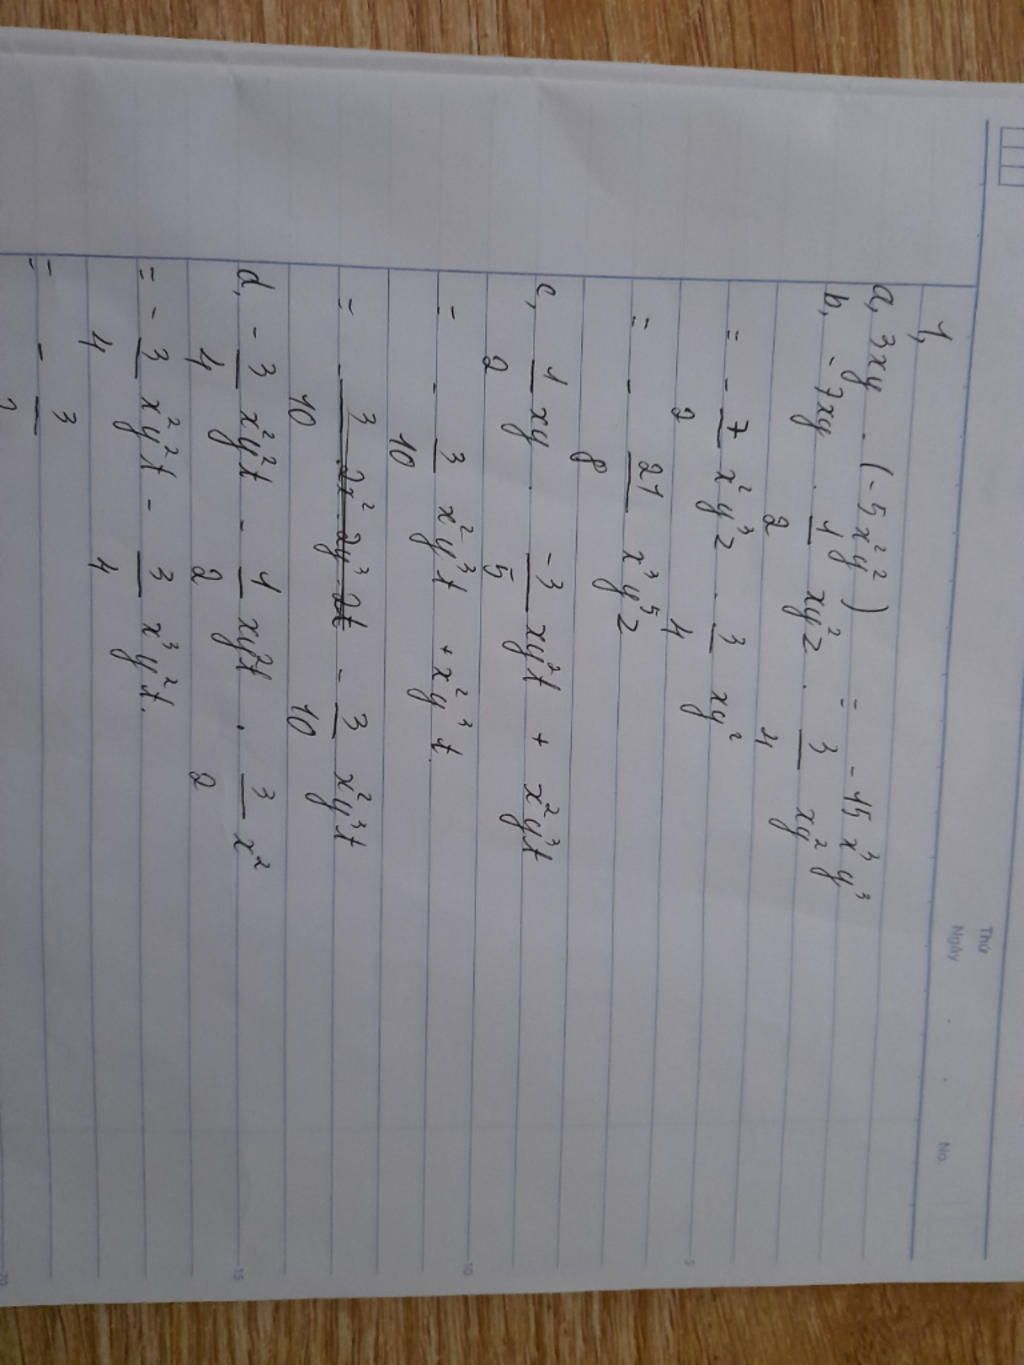 Thứ
Ngày . . No.
1,
a, 3xy . (-5x²y²) = -15x³y³
b, -7xy . 1/2 xy²z . 3/4 xy²
= - 7/2 x²y³z . 3/4 xy²
= - 21/8 x³y⁵z
c, 1/2 xy . -3/5 xy²t + x²y³t
= - 3/10 x²y³t + x²y³t.
= - 3/10 - 3/10 x²y³t
d, - 3/4 x²y²t - 1/2 xy²t . 3/2 x²
= - 3/4 x²y²t - 3/4 x³y²t.
= - 3
5
10
15
20